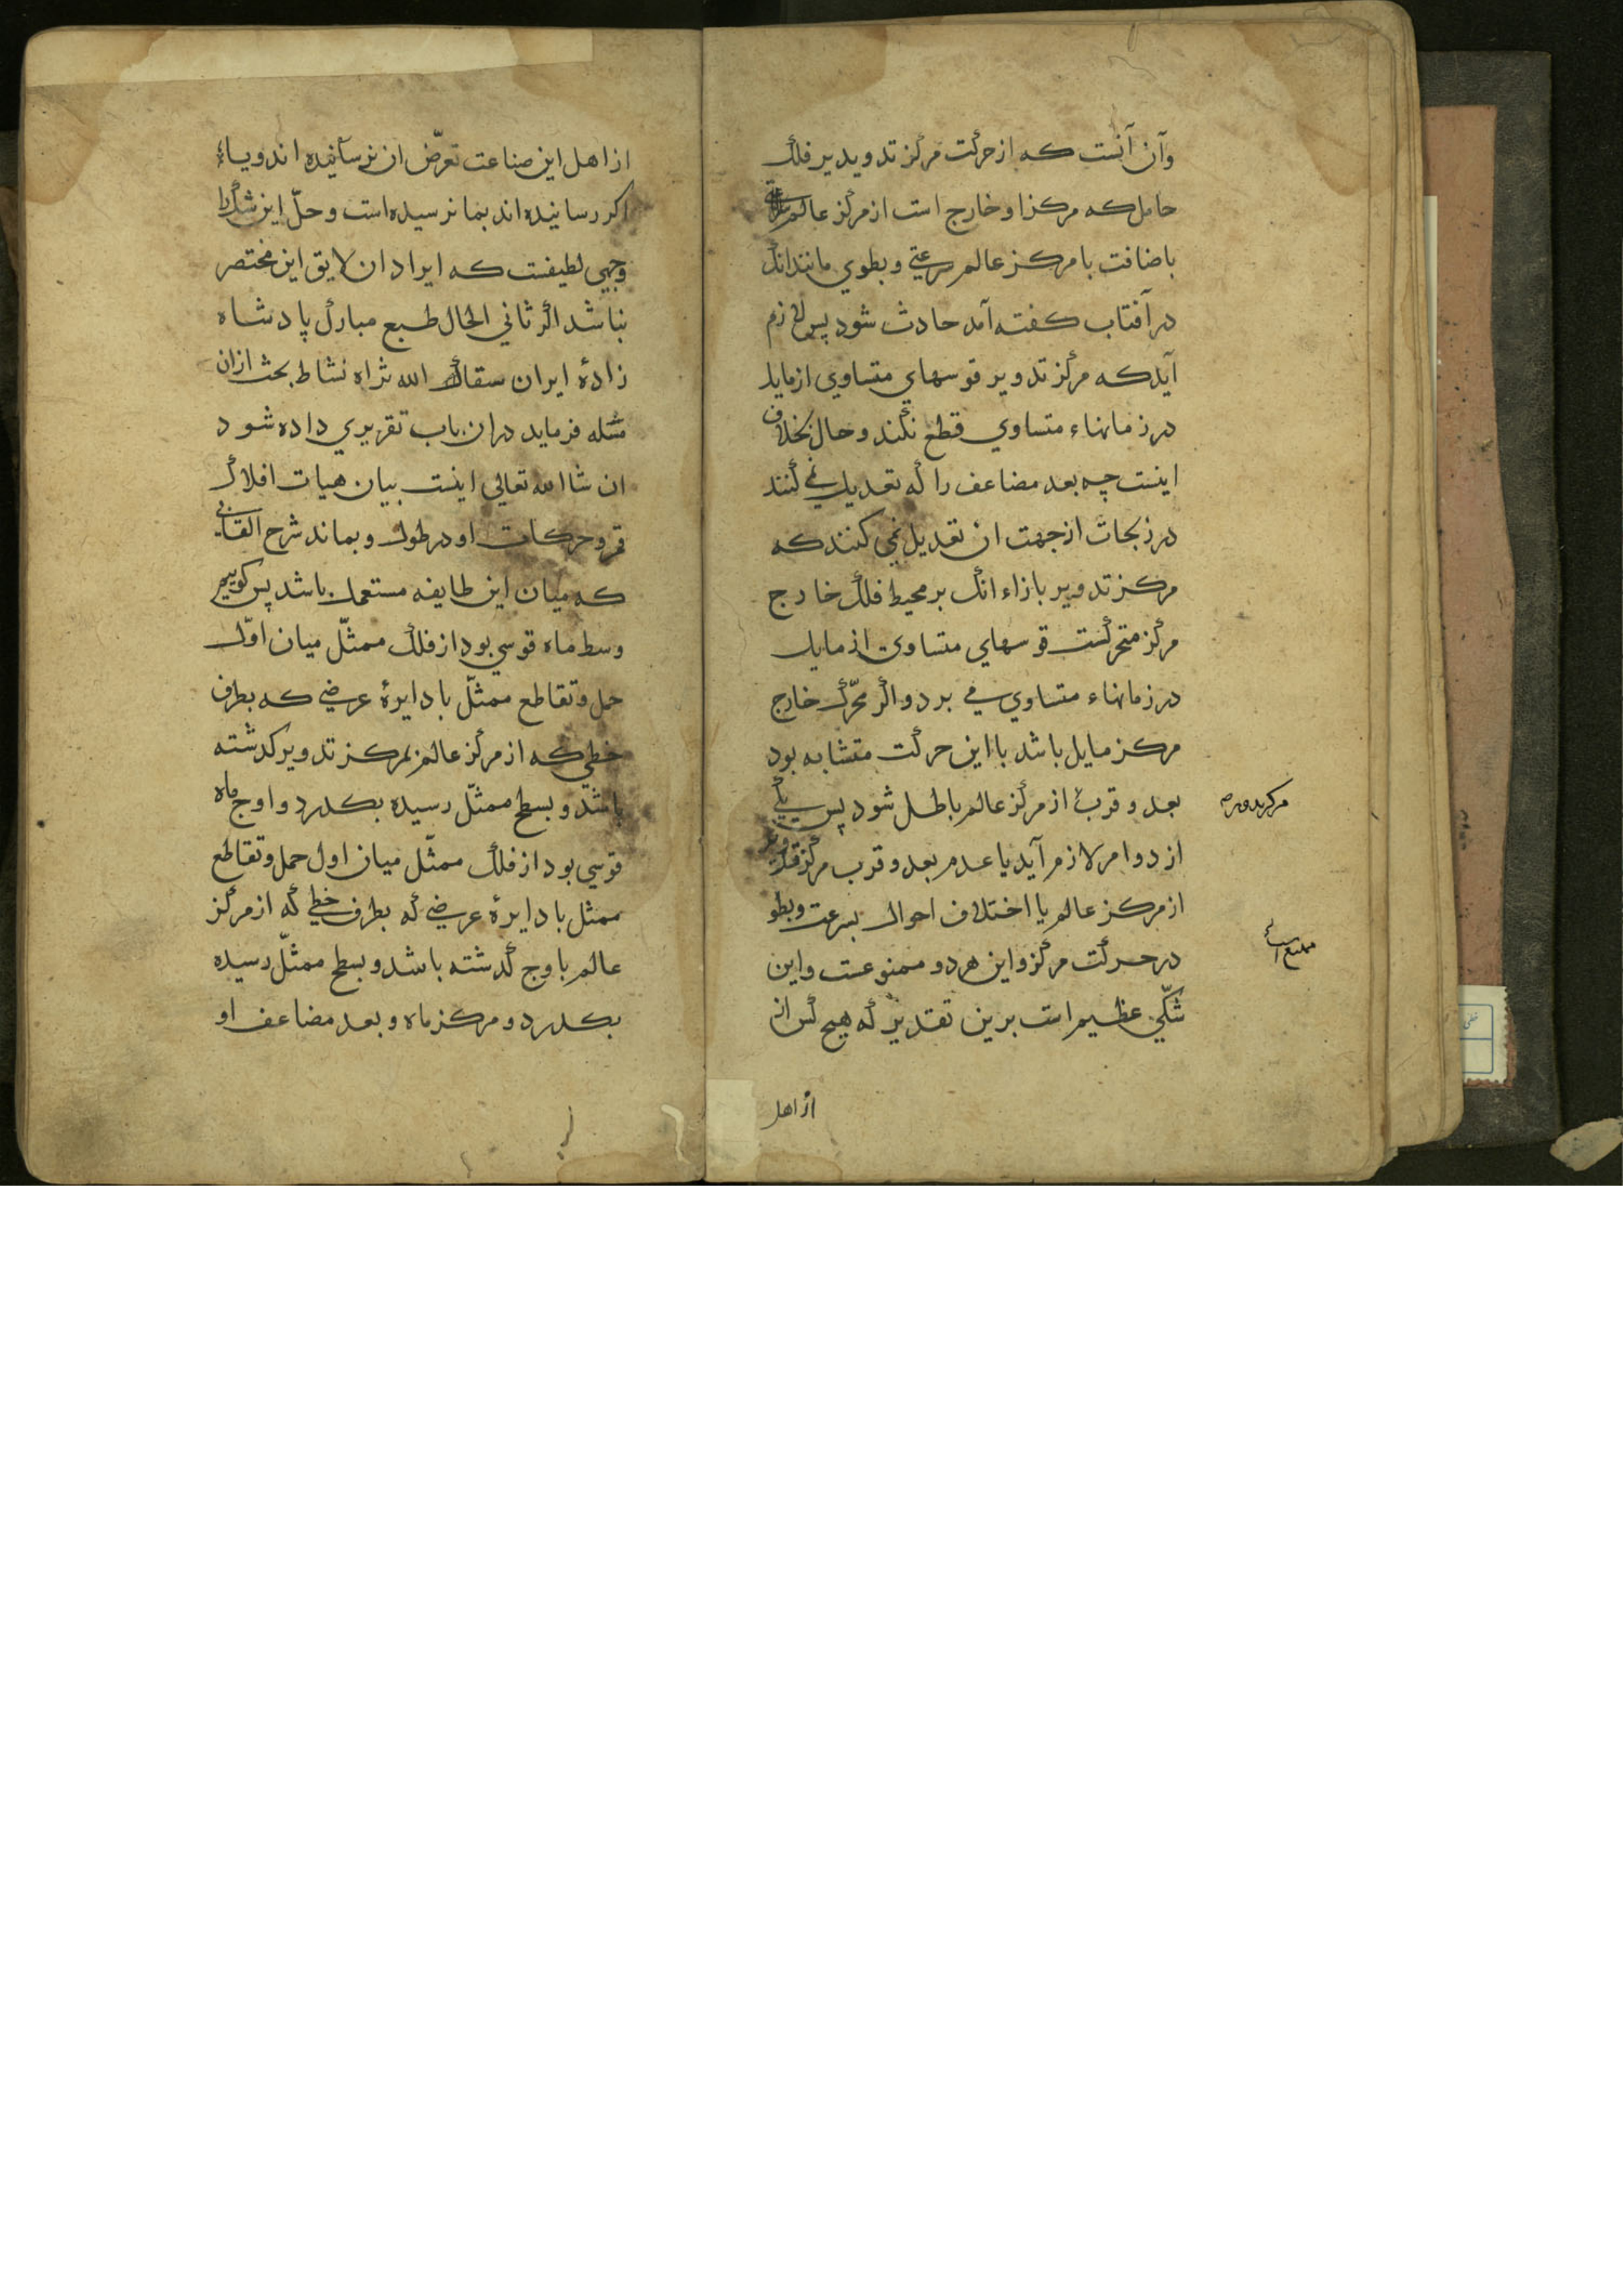 وآن آنست که از حرکت مرکز تدویر بر فلک
حامل که مرکز او خارج است از مرکز عالم
باضافت با مرکز عالم سرعتی و بطوی مانند انک
در آفتاب کفته آمد حادث شود پس لازم
آید که مرکز تدویر قوسهای متساوی از مایل
در زمانهاء متساوی قطع نکند و حال بخلاف
اینست چه بعد مضاعف را که تعدیل نمی کنند
در زیجات از جهت ان تعدیل نمی کنند که
مرکز تدویر بازاء انک بر محیط فلک خارج
مرکز متحرکست قوسهای متساوی از مایل
در زمانهاء متساوی می برد و اکر محرک خارج
مرکز مایل باشد با این حرکت متشابه بود
بعد و قرب از مرکز عالم باطل شود پس یکی
مرکز تدویر
از دو امر لازم آید یا عدم بعد و قرب مرکز تدویر
از مرکز عالم یا اختلاف احوال بسرعت و بطو
در حرکت مرکز و این هر دو ممنوعست و این
ممتنع است
شکی عظیم است برین تقدیر که هیچ کس از
از اهل
از اهل این صناعت تعرض ان نرسانیده اند و یا
اکر رسانیده اند بما نرسیده است و حل این شک را
وجهی لطیفست که ایراد ان لایق این مختصر
نباشد اکر ثانی الحال طبع مبارک پادشاه
زادهٔ ایران الله ثراه نشاط بحث ازان
مسٔله فرماید دران باب تقریری داده شود
ان شا الله تعالی اینست بیان هیات افلاک
قمر و حرکات او در طول و بماند شرح القابی
که میان این طایفه مستعمل باشد پس کوییم
وسط ماه قوسی بود از فلک ممثّل میان اوّل
حمل و تقاطع ممثّل با دایرهٔ عرضی که بطرف
خطی که از مرکز عالم بمرکز تدویر کذشته
باشد و بسطح ممثّل رسیده بکذرد و اوج ماه
قوسی بود از فلک ممثّل میان اول حمل و تقاطع
ممثل با دایرهٔ عرضی که بطرف خطی که از مرکز
عالم باوج کذشته باشد و بسطح ممثّل رسیده
بکذرد و مرکز ماه و بعد مضاعف او